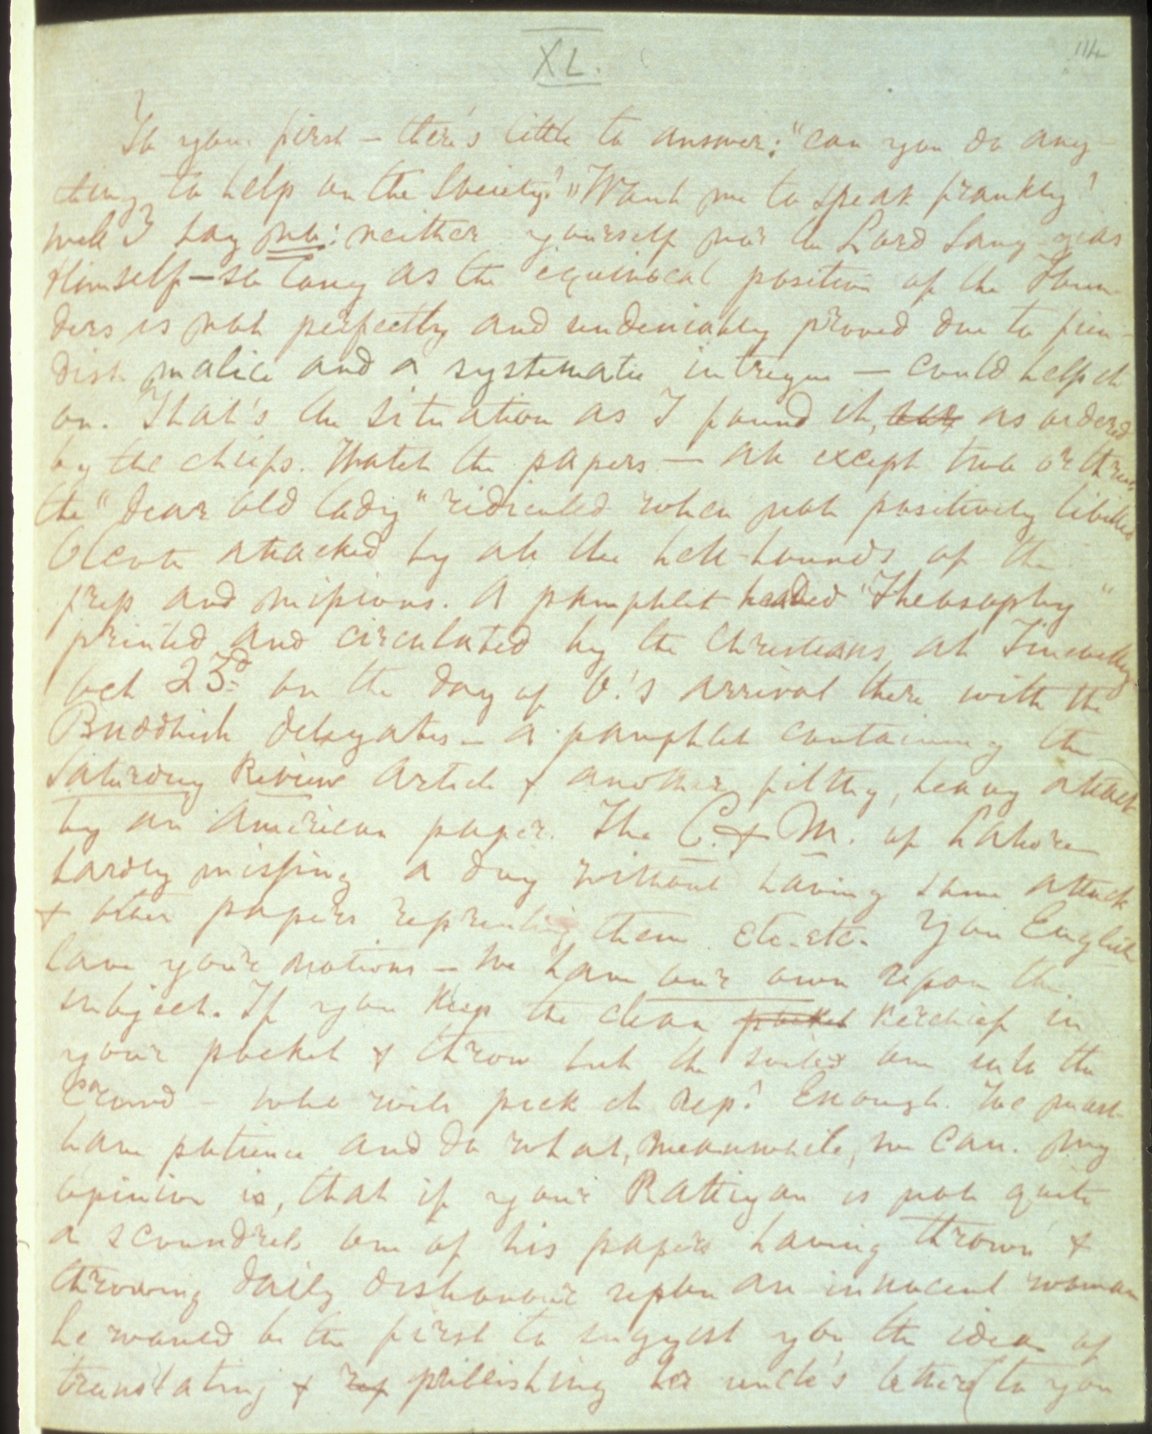 XL.
114
To your first — there's little to answer: "can you do any-
thing to help on the Society?" Want me to speak frankly?
Well I say no: neither yourself nor the Lord Sang-yias
Himself — so long as the equivocal position of the Foun-
ders is not perfectly and undeniably proved due to fien-
dish malice and a systematic intrigue — could help it
on. That's the situation as I found it, as ordered
by the chiefs. Watch the papers — all except two or three
the "dear old lady" ridiculed when not positively libelled
Olcott attacked by all the hell-hounds of the
press and missions. A pamphlet headed "Theosophy"
printed and circulated by the Christians at Tinevelly
Oct 23d on the day of O.'s arrival there with the
Buddhist delegates — a pamphlet containing the
Saturday Review article & another filthy, heavy attack
by an American paper. The C. & M. of Lahore
hardly missing a day without having some attack
& other papers reprinting them etc. etc. You English
have your notions — we have our own upon the
subject. If you keep the clean pocket kerchief in
your pocket & throw but the soiled one into the
Crowd — who will pick it up? Enough. We must
have patience and do what, meanwhile, we can. My
opinion is, that if your Rattigan is not quite
a scoundrel, one of his papers having thrown &
throwing daily dishonour upon an innocent woman
he would be the first to suggest you the idea of
translating & publishing her uncle's letters (to you